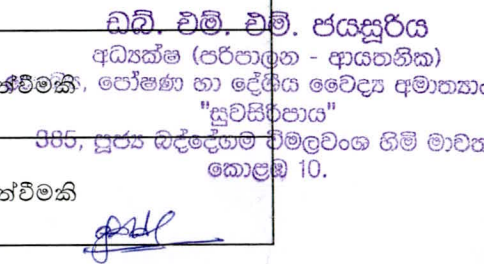 ඩබ්. එම්. එම්. ජයසූරිය
අධ්‍යක්ෂ (පරිපාලන - ආයතනික)
පෝෂණ හා දේශීය වෛද්‍ය අමාත්‍යාං
ත්වීමකි
"සුවසිරිපාය"
385, පූජ්‍ය බද්දේගම විමලවංශ හිමි මාවත
කොළඹ 10.
ත්වීමකි